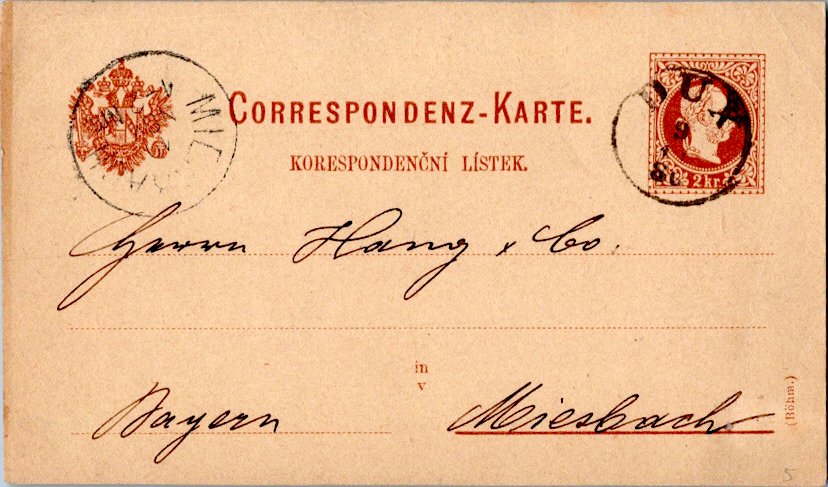 CORRESPONDENZ-KARTE.
KORESPONDENČNÍ LÍSTEK.
DUX
9
80
2 kr.
Herrn Haug & Co.
in
v
Bayern Miesbach
(Böhm.)
5